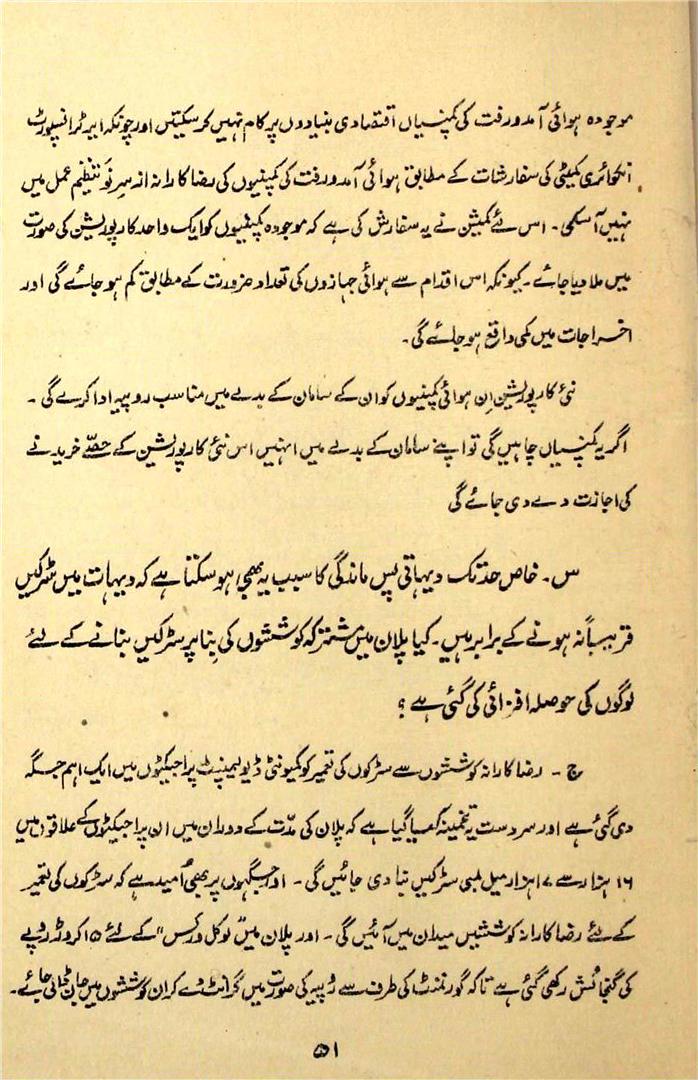 موجودہ ہوائی آمدورفت کی کمپنیاں اقتصادی بنیادوں پر کام نہیں کر سکیتں اور چونکہ ایر ٹرانسپورٹ
انکوائری کمیٹی کی سفارشات کے مطابق ہوائی آمدورفت کی کمپنیوں کی رضاکارانہ از سرِ نَو تنظیم عمل میں
نہیں آ سکی۔ اس لئے کمیشن نے یہ سفارش کی ہے کہ موجودہ کمپنیوں کو ایک واحد کارپوریشن کی صورت
میں ملا دیا جائے۔ کیونکہ اس اقدام سے ہوائی جہازوں کی تعداد ضرورت کے مطابق کم ہو جائے گی اور
اخراجات میں کمی واقع ہو جائے گی۔
نئی کارپوریشن اِن ہوائی کمپنیوں کو ان کے سامان کے بدلے میں مناسب روپیہ ادا کرے گی۔
اگر یہ کمپنیاں چاہیں گی تو اپنے سامان کے بدلے میں انہیں اس نئی کارپوریشن کے حصّے خریدنے
کی اجازت دے دی جائے گی
س۔ خاص حد تک دیہاتی پس ماندگی کا سبب یہ بھی ہو سکتا ہے کہ دیہات میں سڑکیں
قریباً نہ ہونے کے برابر ہیں۔ کیا پلان میں مشترکہ کوششوں کی بِنا پر سڑکیں بنانے کے لئے
لوگوں کی حوصلہ افزائی کی گئی ہے؟
ج۔ رضاکارانہ کوششوں سے سڑکوں کی تعمیر کو کمیونٹی ڈیولیمپنٹ پراجیکٹوں میں ایک اہم جگہ
دی گئی ہے اور سردست یہ تخمینہ کیا گیا ہے کہ پلان کی مدّت کے دوران میں ان پراجیکٹوں کے علاقوں میں
۱۶ ہزار سے ۱۷ ہزار میل لمبی سڑکیں بنا دی جائیں گی۔ اور جگہوں پر بھی اُمید ہے کہ سڑکوں کی تعمیر
کے لئے رضاکارانہ کوششیں میدان میں آئیں گی۔ اور پلان میں "لوکل ورکس" کے لئے ۱۵ کروڑ روپے
کی گنجائش رکھی گئی ہے تاکہ گورنمنٹ کی طرف سے روپیہ کی صورت میں گرانٹ دے کر ان کوششوں میں جان ڈالی جائے۔
۵۱